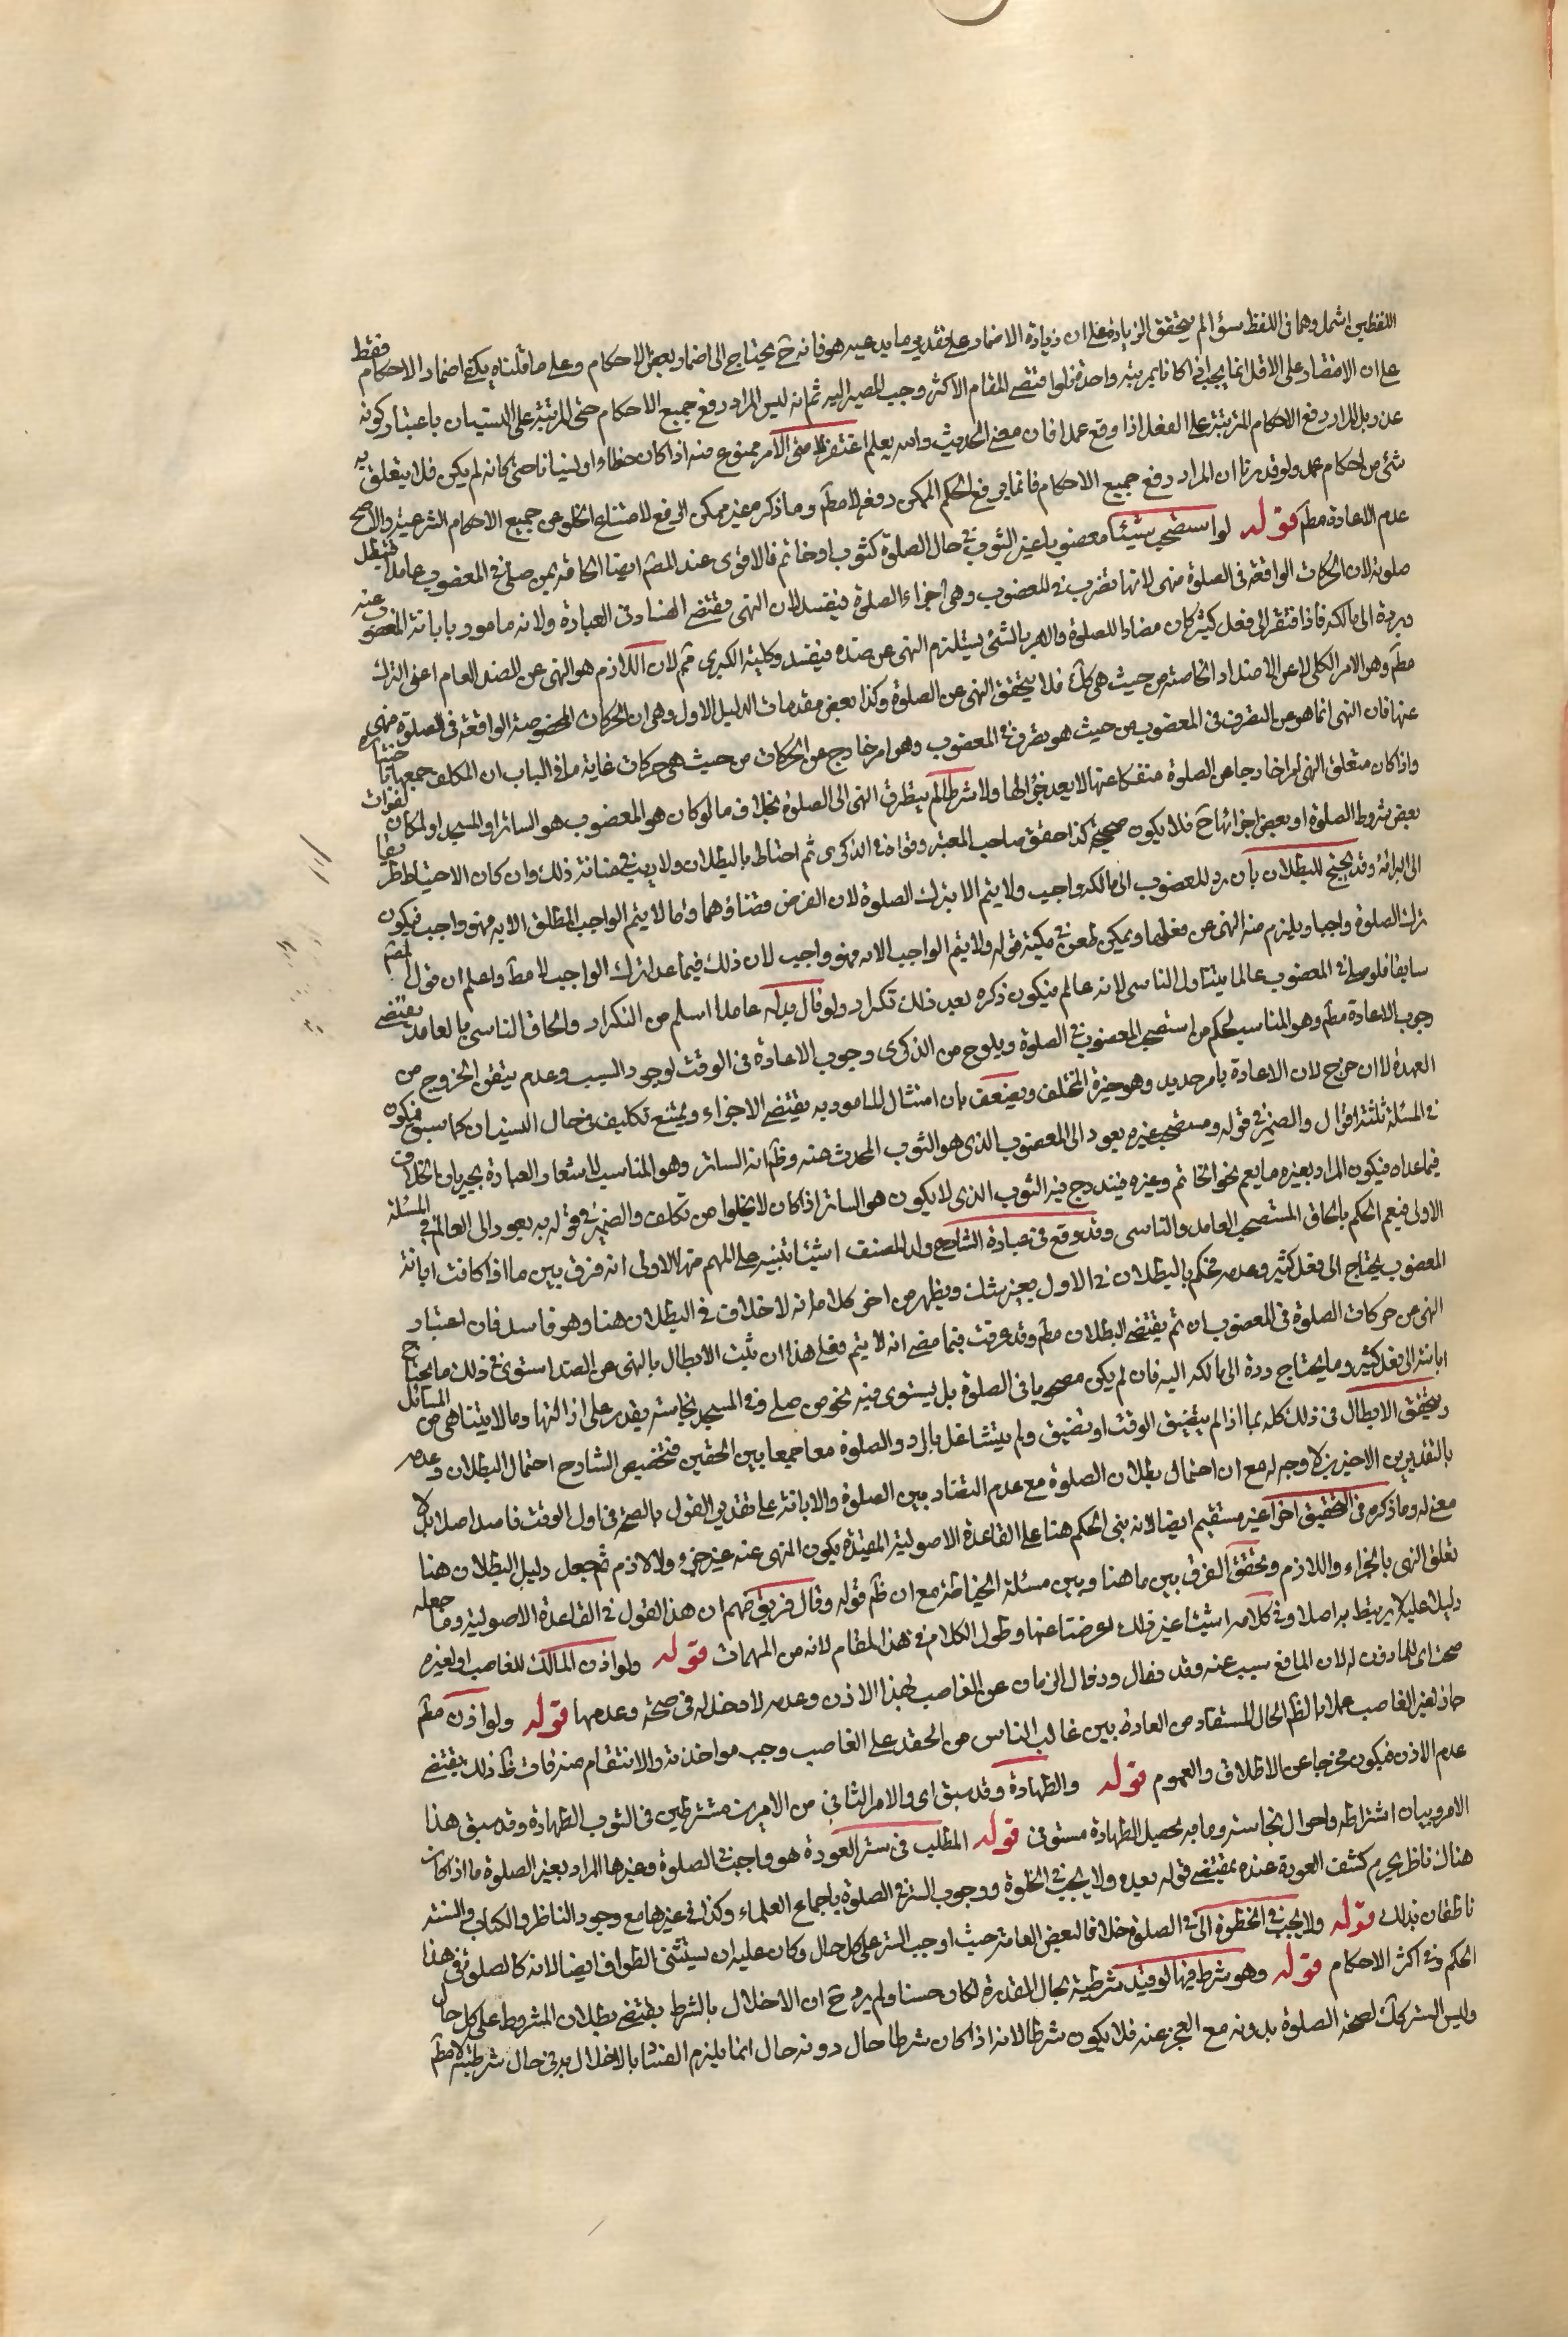 اللفظين اشمل وهما في اللفظ سؤالم يتحقق الزيادة على ان زيادة الاضمار على تقدير ما يدعيه هو فانه ح يحتاج الى اضمار بعض الاحكام وعلى ما قلناه يكفي اضمار الاحكام فقط
على ان الاقتصار على الاقل انما يجب اذا كانا بمرتبة واحدة فلو اقتضى المقام الاكثر وجب المصير اليه ثم انه ليس المراد رفع جميع الاحكام حتى المرتبة على النسيان باعتبار كونه
عذر بل المراد رفع الاحكام المترتبة على الفعل اذا وقع عمدا فان معنى الحديث والله يعلم اغتفر لامتى الامر ممنوع منه اذا كان خطا او نسيانا حتى كانه لم يكن فلا يتعلق به
شئ من احكام عمد ولو قدرنا ان المراد رفع جميع الاحكام فانما يرفع الحكم الممكن رفعه لا مطلقا وما ذكر غير ممكن الرفع لامتناع الخلو من جميع الاحكام الشرعية والاصح
عدم الاعادة مطم قوله لو استصحب شيئا مغصوبا غير الثوب في حال الصلوة كثوب او خاتم فالاقوى عند المصم ايضا الحاقه بمن صلى في المغصوب عامدا فتبطل
صلوته لان الحركات الواقعة في الصلوة منهى لانها تصرف في المغصوب وهى اجزاء الصلوة فيفسد لان النهى يقتضى الفساد في العبادة ولانه مامور بابانة المغصوب عنه
ورده الى مالكه فاذا افتقر الى فعل كثير كان مضادا للصلوة والامر بالشئ يستلزم النهى عن ضده فيفسد وكلية الكبرى ثم لان اللازم هو النهى عن الضد العام اعنى الترك
مطم وهو الامر الكلى لا عن الاضداد الخاصة من حيث هى كك فلا يتحقق النهى عن الصلوة وكذا بعض مقدمات الدليل الاول وهى ان الحركات المخصوصة الواقعة في الصلوة منهى
عنها فان النهى انما هو عن التصرف في المغصوب من حيث هو تصرف في المغصوب وهو امر خارج عن الحركات من حيث هى حركات غاية ما في الباب ان المكلف جمعهما
واذا كان متعلق النهى امرا خارجا عن الصلوة منفكا عنها لا يعد جزؤا لها ولا شرطا لم يتطرق النهى الى الصلوة بخلاف ما لو كان هو المغصوب هو الساتر او المسجد او المكان لفوات
بعض شروط الصلوة او بعض اجزائها ح فلا يكون صحيحة كذا حقق صاحب المعتبر وقواه في الذكرى ثم احتاط بالبطلان ولا ريب في متانة ذلك وان كان الاحتياط طريقا
الى البرائة وقد يحتج للبطلان بان رد المغصوب الى مالكه واجب ولا يتم الا بترك الصلوة لان الفرض تضادهما وما لا يتم الواجب المطلق الا به فهو واجب فيكون
ترك الصلوة واجبا ويلزم منه النهى عن فعلها ويمكن طعن في كلية قوله ولا يتم الواجب الا به فهو واجب لان ذلك فيما عدا ترك الواجب لا مطم واعلم ان قول المصم
سابقا فلو صلى في المغصوب عالما يتناول الناسى لانه عالم فيكون ذكره بعد ذلك تكرار ولو قال بدله عامدا اسلم من التكرار والحاق الناسى بالعامد يقتضى
وجوب الاعادة مطم وهو المناسب لحكم من استصحب المغصوب في الصلوة ويلوح من الذكرى وجوب الاعادة في الوقت لوجود السبب وعدم تيقن الخروج من
العهدة لا ان خرج لان الاعادة بامر جديد وهو خيرة المختلف ويضعف بان امتثال المامور به يقتضى الاجزاء ويمتنع تكليف في حال النسيان كما سبق فيكون
في المسئلة ثلثة اقوال والضمير في قوله ومستصحب غيره يعود الى المغصوب الذى هو الثوب المحدث عنه وظم انه الساتر وهو المناسب لاشعار العبادة بجريان الخلاف
فيما عداه فيكون المراد بغيره ما يعم نحو الخاتم وغيره فيندرج فيه الثوب الذى لا يكون هو الساتر اذا كان لا يخلوا من تكلف والضمير في قوله به يعود الى العالم في المسئلة
الاولى فيعم الحكم بالحاق المستصحب العامد والناسى وقد وقع في عبارة الشارح ولد المصنف اشياء نبنيه على المهم منها الاولى انه فرق بين ما اذا كانت ابانة
المغصوب يحتاج الى فعل كثير وعدمه فحكم بالبطلان في الاول بغير شك ويظهر من اخر كلامه انه لا خلاف في البطلان هنا وهو فاسد فان اعتبار
النهى عن حركات الصلوة في المغصوب ان تم يقتضى البطلان مطم وقد عرفت فيما مضى انه لا يتم فعلى هذا ان ثبت الابطال بالنهى عن الضد استوى في ذلك ما يحتاج
ابانته الى فعل كثير وما يحتاج رده الى مالكه اليه فان لم يكن مصحوبا في الصلوة بل يستوى فيه نحو من صلى وفي المسجد نجاسة يقدر على ازالتها وما لا يتناهى من المسائل
ويتحقق الابطال في ذلك كله بما اذا لم يتضيق الوقت او تضيق ولم يتشاغل بالرد والصلوة معا جمعا بين الحقين فتخصيص الشارح احتمال البطلان وعدمه
بالتقديرين الاخيرين لا وجه له مع ان احتمال بطلان الصلوة مع عدم التضاد بين الصلوة والابانة على تقدير القول بالصحة في اول الوقت فاسد اصلا بل لا
معنى له وما ذكره في التحقيق اخرا غير مستقيم ايضا لانه بنى الحكم هنا على القاعدة الاصولية المقيدة بكون المنهى عنه غير جزء ولا لازم ثم جعل دليل البطلان هنا
تعلق النهى بالجزاء واللازم وتحقق الفرق بين ما هنا وبين مسئلة الخياطة مع ان ظم قوله وقال فريق منهم ان هذا القول في القاعدة الاصولية وما جعله
دليلا عليه لا يرتبط به اصلا وفي كلامه اشياء غير ذلك اعرضنا عنها وطول الكلام في هذا المقام لانه من المهمات قوله ولو اذن المالك للغاصب او لغيره
صحت اى للماذون له لان المانع سبب عنه وقد فقال وزوال الزمان عن الغاصب بهذا الاذن وعدمه لا دخل له في صحة وعدمها قوله ولو اذن مطم
جاز لغير الغاصب عملا بالظم الحال المستفاد من العادة بين غالب الناس من الحقد على الغاصب وجب مواخذته والانتقام منه فان ظم ذلك يقتضى
عدم الاذن فيكون مخرجا عن الاطلاق والعموم قوله والطهارة وقد سبق اى والامر الثانى من الامرين مشترطين في الثوب الطهارة وقد سبق هذا
الامر وبيان اشتراطه واحوال نجاسته وما به تحصيل الطهارة مستوفى قوله المطلب في ستر العورة هو واجب في الصلوة وغيرها المراد بغير الصلوة ما اذا كان
هناك ناظر يحرم كشف العورة عنده بمقتضى قوله بعده ولا يجب في الخلوة ووجوب الستر في الصلوة باجماع العلماء وكذا في غيرها مع وجود الناظر والكتاب والسنة
ناطقان بذلك قوله ولا يجب في الخلوة الا في الصلوة خلافا لبعض العامة حيث اوجب الستر على كل حال وكان عليه ان يستثنى الطواف ايضا لانه كالصلوة في هذا
الحكم وفي اكثر الاحكام قوله وهو شرط فيها لو قيد شرطيته بحال المقدرة لكان حسنا ولم يرد ح ان الاخلال بالشرط يقتضى بطلان المشروط على كل حال
وليس الستر كك لصحة الصلوة بدونه مع العجز عنه فلا يكون شرطا لانه اذا كان شرطا حال دونه حال انما يلزم الفساد بالاخلال به في حال شرطيته لا مطم